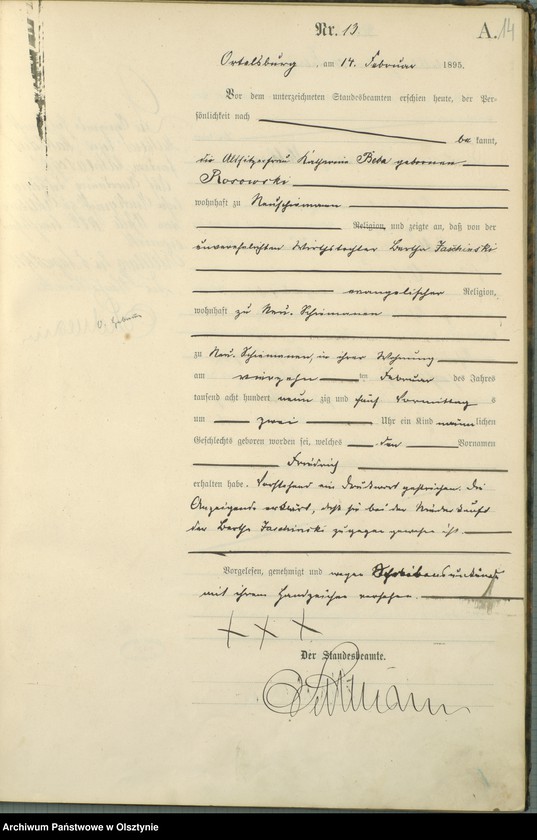 Nr. 13
A. 14
Ortelsburg am 14. Februar 1895.
Vor dem unterzeichneten Standesbeamten erschien heute, der Per-
sönlichkeit nach
be kannt,
die Altsitzerfrau Katharina Beba geborenen
Rosowski
wohnhaft zu Neuschiemanen
Religion, und zeigte an, daß von der
unverehelichten Wirthstochter Bertha Jaschinski
evangelischer Religion,
wohnhaft zu Neu. Schiemanen
zu Neu. Schiemanen, in ihrer Wohnung
am vierzehn ten Februar des Jahres
tausend acht hundert neun zig und fünf Vormittag s
um zwei Uhr ein Kind männlichen
Geschlechts geboren worden sei, welches den Vornamen
Friedrich
erhalten habe. Vorstehend ein Druckwort gestrichen. Die
Anzeigende erklärt, daß sie bei der Niederkunft
der Bertha Jaschinski zugegen gewesen ist.
Vorgelesen, genehmigt und wegen Schreibensunkunde
mit ihrem Handzeichen versehen.
+ + +
Der Standesbeamte.
Archiwum Państwowe w Olsztynie